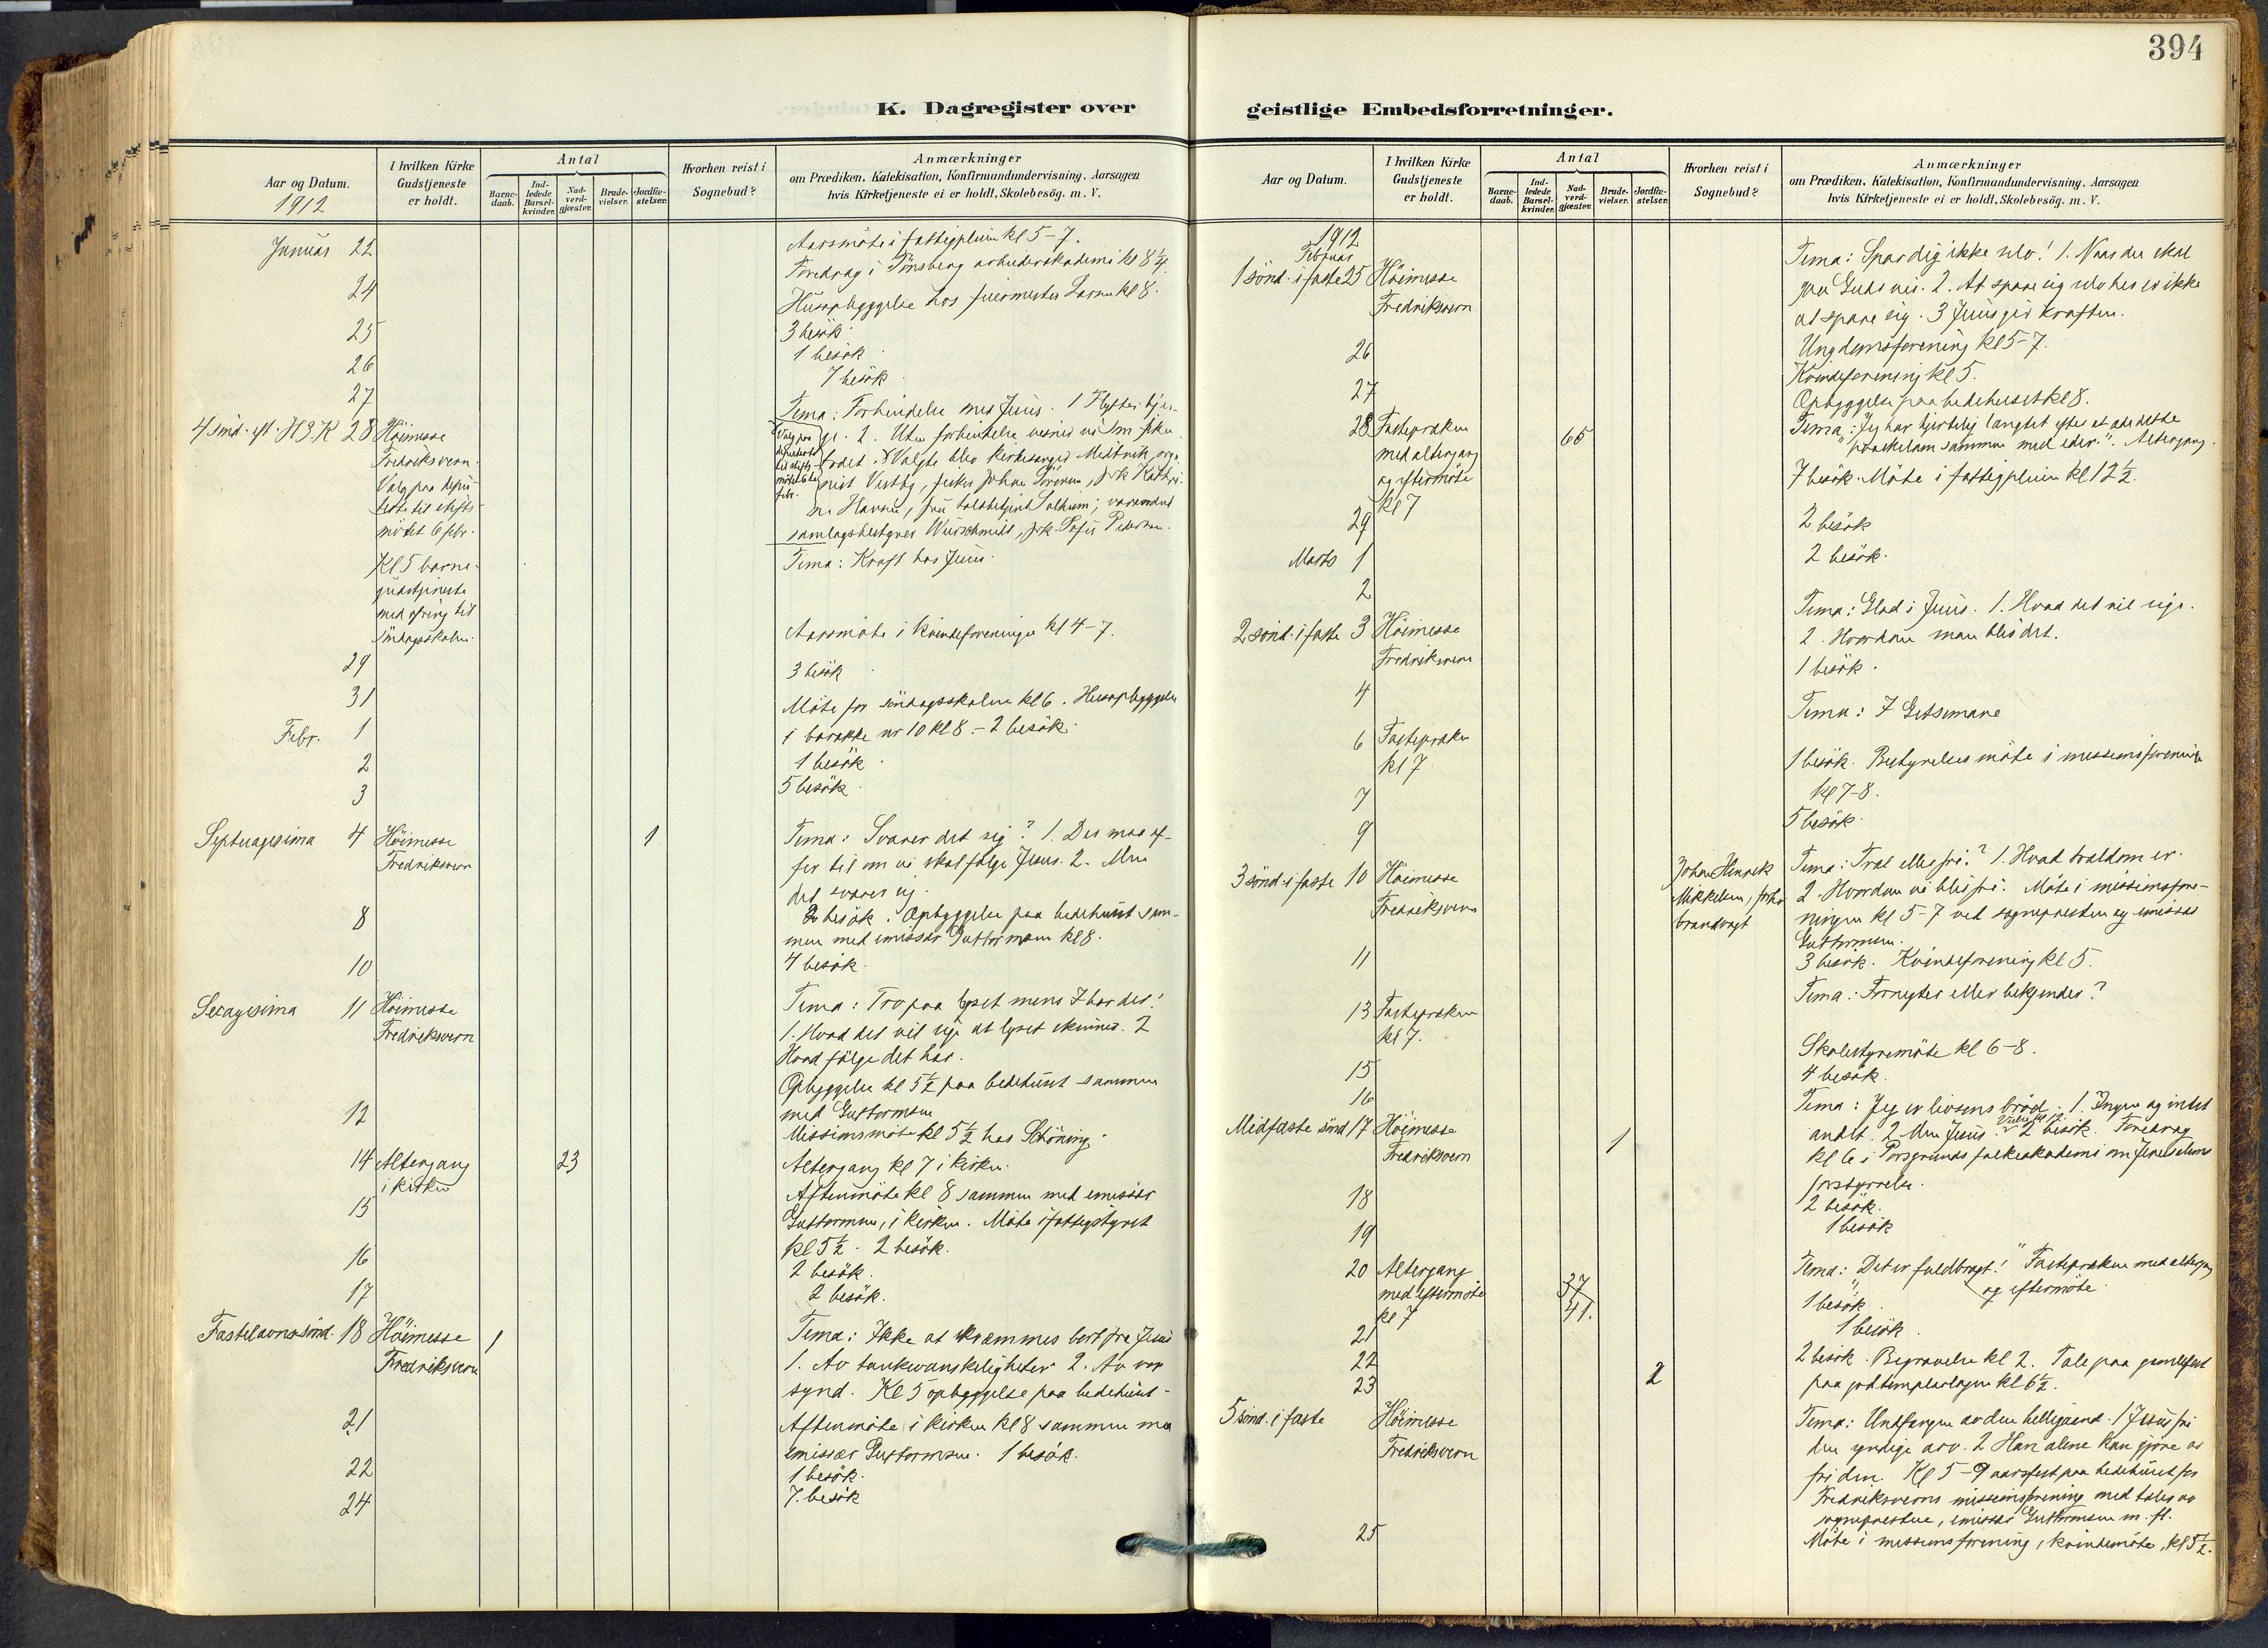 394
K. Dagregister over
Aar og Datum.
1912
I hvilken Kirke
Gudstjeneste
er holdt.
Antal
Barne-
daab.
Ind-
ledede
Barsel-
kvinder.
Nad-
verd-
gjæster.
Brude-
vielser.
Jordfæ-
stelser.
Hvorhen reist i
Sognebud?
Anmærkninger
om Prædiken, Katekisation, Konfirmandundervisning, Aarsagen
hvis Kirketjeneste ei er holdt, Skolebesög. m. V.
Januar 22 Aarsmöte i fattigpleien kl 5-7.
Foredrag i Tönsberg arbeiderakademi kl 8 1/4.
24 Husopbyggelse hos fuermester Larsen kl 8.
25 3 besök
26 1 besök
27 7 besök
4 sönd. eft. H3K 28 Höimesse
Fredriksvern.
Valg paa depu-
terte til stifts-
mötet 6 febr.
Tema: Forbindelse med Jesus. 1 Flytter bjer-
ge. 2. Uten forbindelse visner vi som fiken-
træet. Valgte blev kirkesanger Midtvik, orga-
nist Vestby, fisker Johan Sörensen, frk Kathri-
ne Hansen, fru toldbetjent Solheim; varamænd
samlagsbestyrer Würschmidt, frk. Sofie Pedersen.
Valg paa
deputerte
til stifts-
mötet 6te
febr.
Kl 5 barne-
gudstjeneste
med ofring til
söndagsskolen.
Tema: Kraft hos Jesus.
29 Aarsmöte i kvindeforeningen kl 4-7.
31 3 besök
Febr. 1 Möte for söndagsskolen kl 6. Husopbyggelse
i barakke nr 10 kl 8. - 2 besök.
2 1 besök
3 5 besök
Septuagesima 4 Höimesse 1
Fredriksvern
Tema: Svarer det sig? 1. Der maa of-
fer til om vi skal fölge Jesus. 2. Men
det svarer sig.
8 2 besök. Opbyggelse paa bedehuset sam-
men med emissær Guttormsen kl 8.
10 4 besök.
Sexagesima 11 Höimesse
Fredriksvern
Tema: Tro paa lyset mens I har det!
1. Hvad det vil sige at lyset skinner. 2
Hvad fölge det har.
Opbyggelse kl 5 1/2 paa bedehuset sammen
med Guttormsen
12 Missionsmöte kl 5 1/2 hos Schöning.
14 Altergang 23
i kirken
Altergang kl 7 i kirken.
15 Aftenmöte kl 8 sammen med emissær
Guttormsen, i kirken. Möte i fattigstyret
kl 5 1/2. 2 besök.
16 2 besök.
17 2 besök.
Fastelavnssönd. 18 Höimesse 1
Fredriksvern
Tema: Ikke at skræmmes bort fra Jesus
1. Av tankevanskeligheter 2. Av vor
synd. Kl 5 opbyggelse paa bedehuset.
21 Aftenmöte i kirken kl 8 sammen med
emissær Guttormsen. 1 besök.
22 1 besök.
24 7 besök
geistlige Embedsforretninger.
Aar og Datum.
I hvilken Kirke
Gudstjeneste
er holdt.
Antal
Barne-
daab.
Ind-
ledede
Barsel-
kvinder.
Nad-
verd-
gjæster.
Brude-
vielser.
Jordfæ-
stelser.
Hvorhen reist i
Sognebud?
Anmærkninger
om Prædiken, Katekisation, Konfirmandundervisning, Aarsagen
hvis Kirketjeneste ei er holdt, Skolebesög. m. V.
1912
Februar
1 sönd. i faste 25 Höimesse
Fredriksvern
Tema: Spar dig ikke selv! 1. Naar du skal
gaa Guds vei. 2. At spare sig selv her er ikke
at spare sig. 3 Jesus gir kraften.
Ungdomsforening kl 5-7.
26 Kvindeforening kl 5.
27 Opbyggelse paa bedehuset kl 8.
28 Fastepræken 65
med altergang
og eftermöte
kl 7
Tema: "Jeg har hjertelig længtet efter at æde dette
paaskelam sammen med eder." Altergang.
7 besök. Möte i fattigpleien kl 12 1/2.
29 2 besök
Marts 1 2 besök.
2
2 sönd. i faste 3 Höimesse
Fredriksvern
Tema: Glad i Jesus. 1. Hvad det vil sige.
2. Hvordan man blir det.
4 1 besök.
6 Fastepræken
kl 7
Tema: I Getsemane
7 1 besök. Bestyrelsesmöte i missionsforening
kl 7-8.
9 5 besök.
3 sönd. i faste 10 Höimesse
Fredriksvern
Johan Henrik
Mikkelsen, forhv.
brandvagt
Tema: Træl eller fri? 1. Hvad trældom er.
2. Hvordan vi blir fri. Möte i missionsfore-
ningen kl 5-7 ved sognepresten og emissær
Guttormsen.
11 3 besök. Kvindeforening kl 5.
13 Fastepræken
kl 7.
Tema: Fornegter eller bekjender?
15 Skolestyremöte kl 6-8.
16 4 besök.
Midfaste sönd 17 Höimesse 1
Fredriksvern
Tema: Jeg er livsens bröd. 1. Ingen og intet
andet. 2. Men Jesus. Vielse kl 12. 2 besök. Foredrag
kl 6 i Porsgrunds folkeakademi om Jerusalems
forstyrrelse.
18 2 besök.
19 1 besök
20 Altergang 37
med eftermöte 41.
kl 7
Tema: "Det er fuldbragt!" Fastepræken med altergang
og eftermöte
21 1 besök.
22 1 besök.
23 2
2 besök. Begravelse kl 2. Tale paa gamlefest
paa godtemplarlogen kl 6 1/2.
5 sönd. i faste Höimesse
Fredriksvern
Tema: Undfangen av den helligaand. 1 Jesus fri
den syndige arv. 2 Han alene kan gjöre os
fri den. Kl 5-9 aarsfest paa bedehuset for
Fredriksverns missionsforening med taler av
sognepresten, emissær Guttormsen m. fl.
25 Möte i missionsforening, kvindemöte, kl 5 1/2.